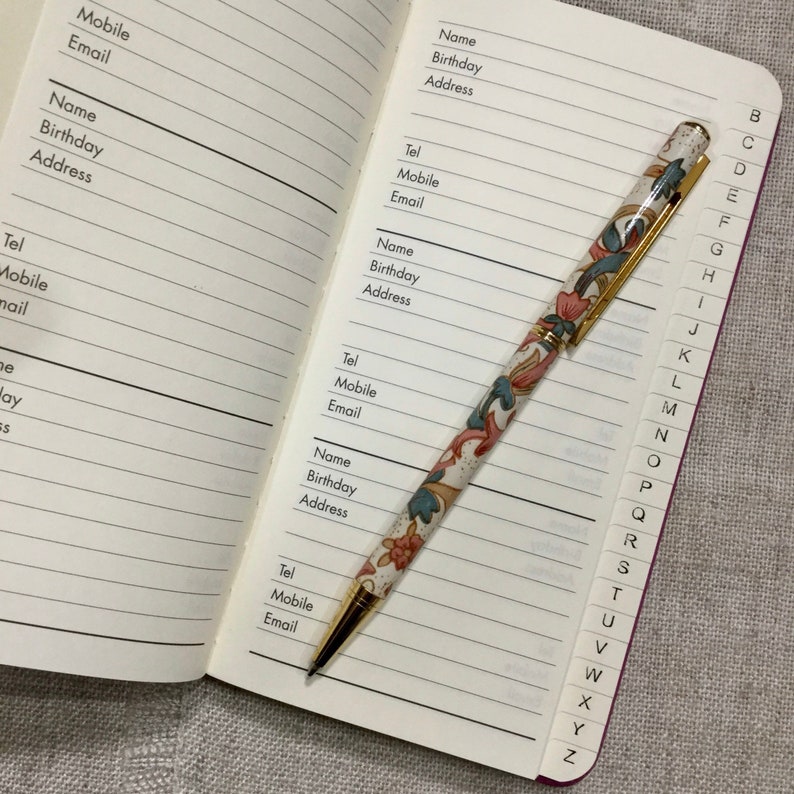 Mobile
Email
Name
Birthday
Address
Tel
Mobile
Name
Birthday
Address
Tel
Mobile
Email
Name
Birthday
Address
Tel
Mobile
Email
Name
Birthday
Address
Tel
Mobile
Email
B
C
D
E
F
G
H
I
J
K
L
M
N
O
P
Q
R
S
T
U
V
W
X
Y
Z